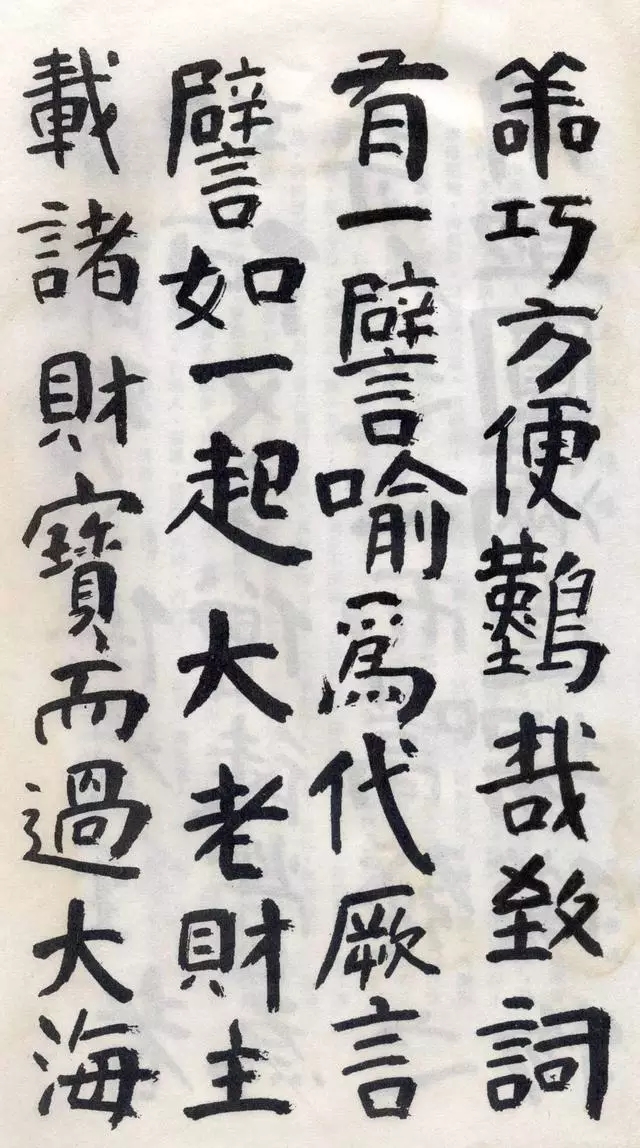 善巧方便難哉致詞
有一譬喻爲代厥言
譬如一起大老財主
載諸財寶而過大海